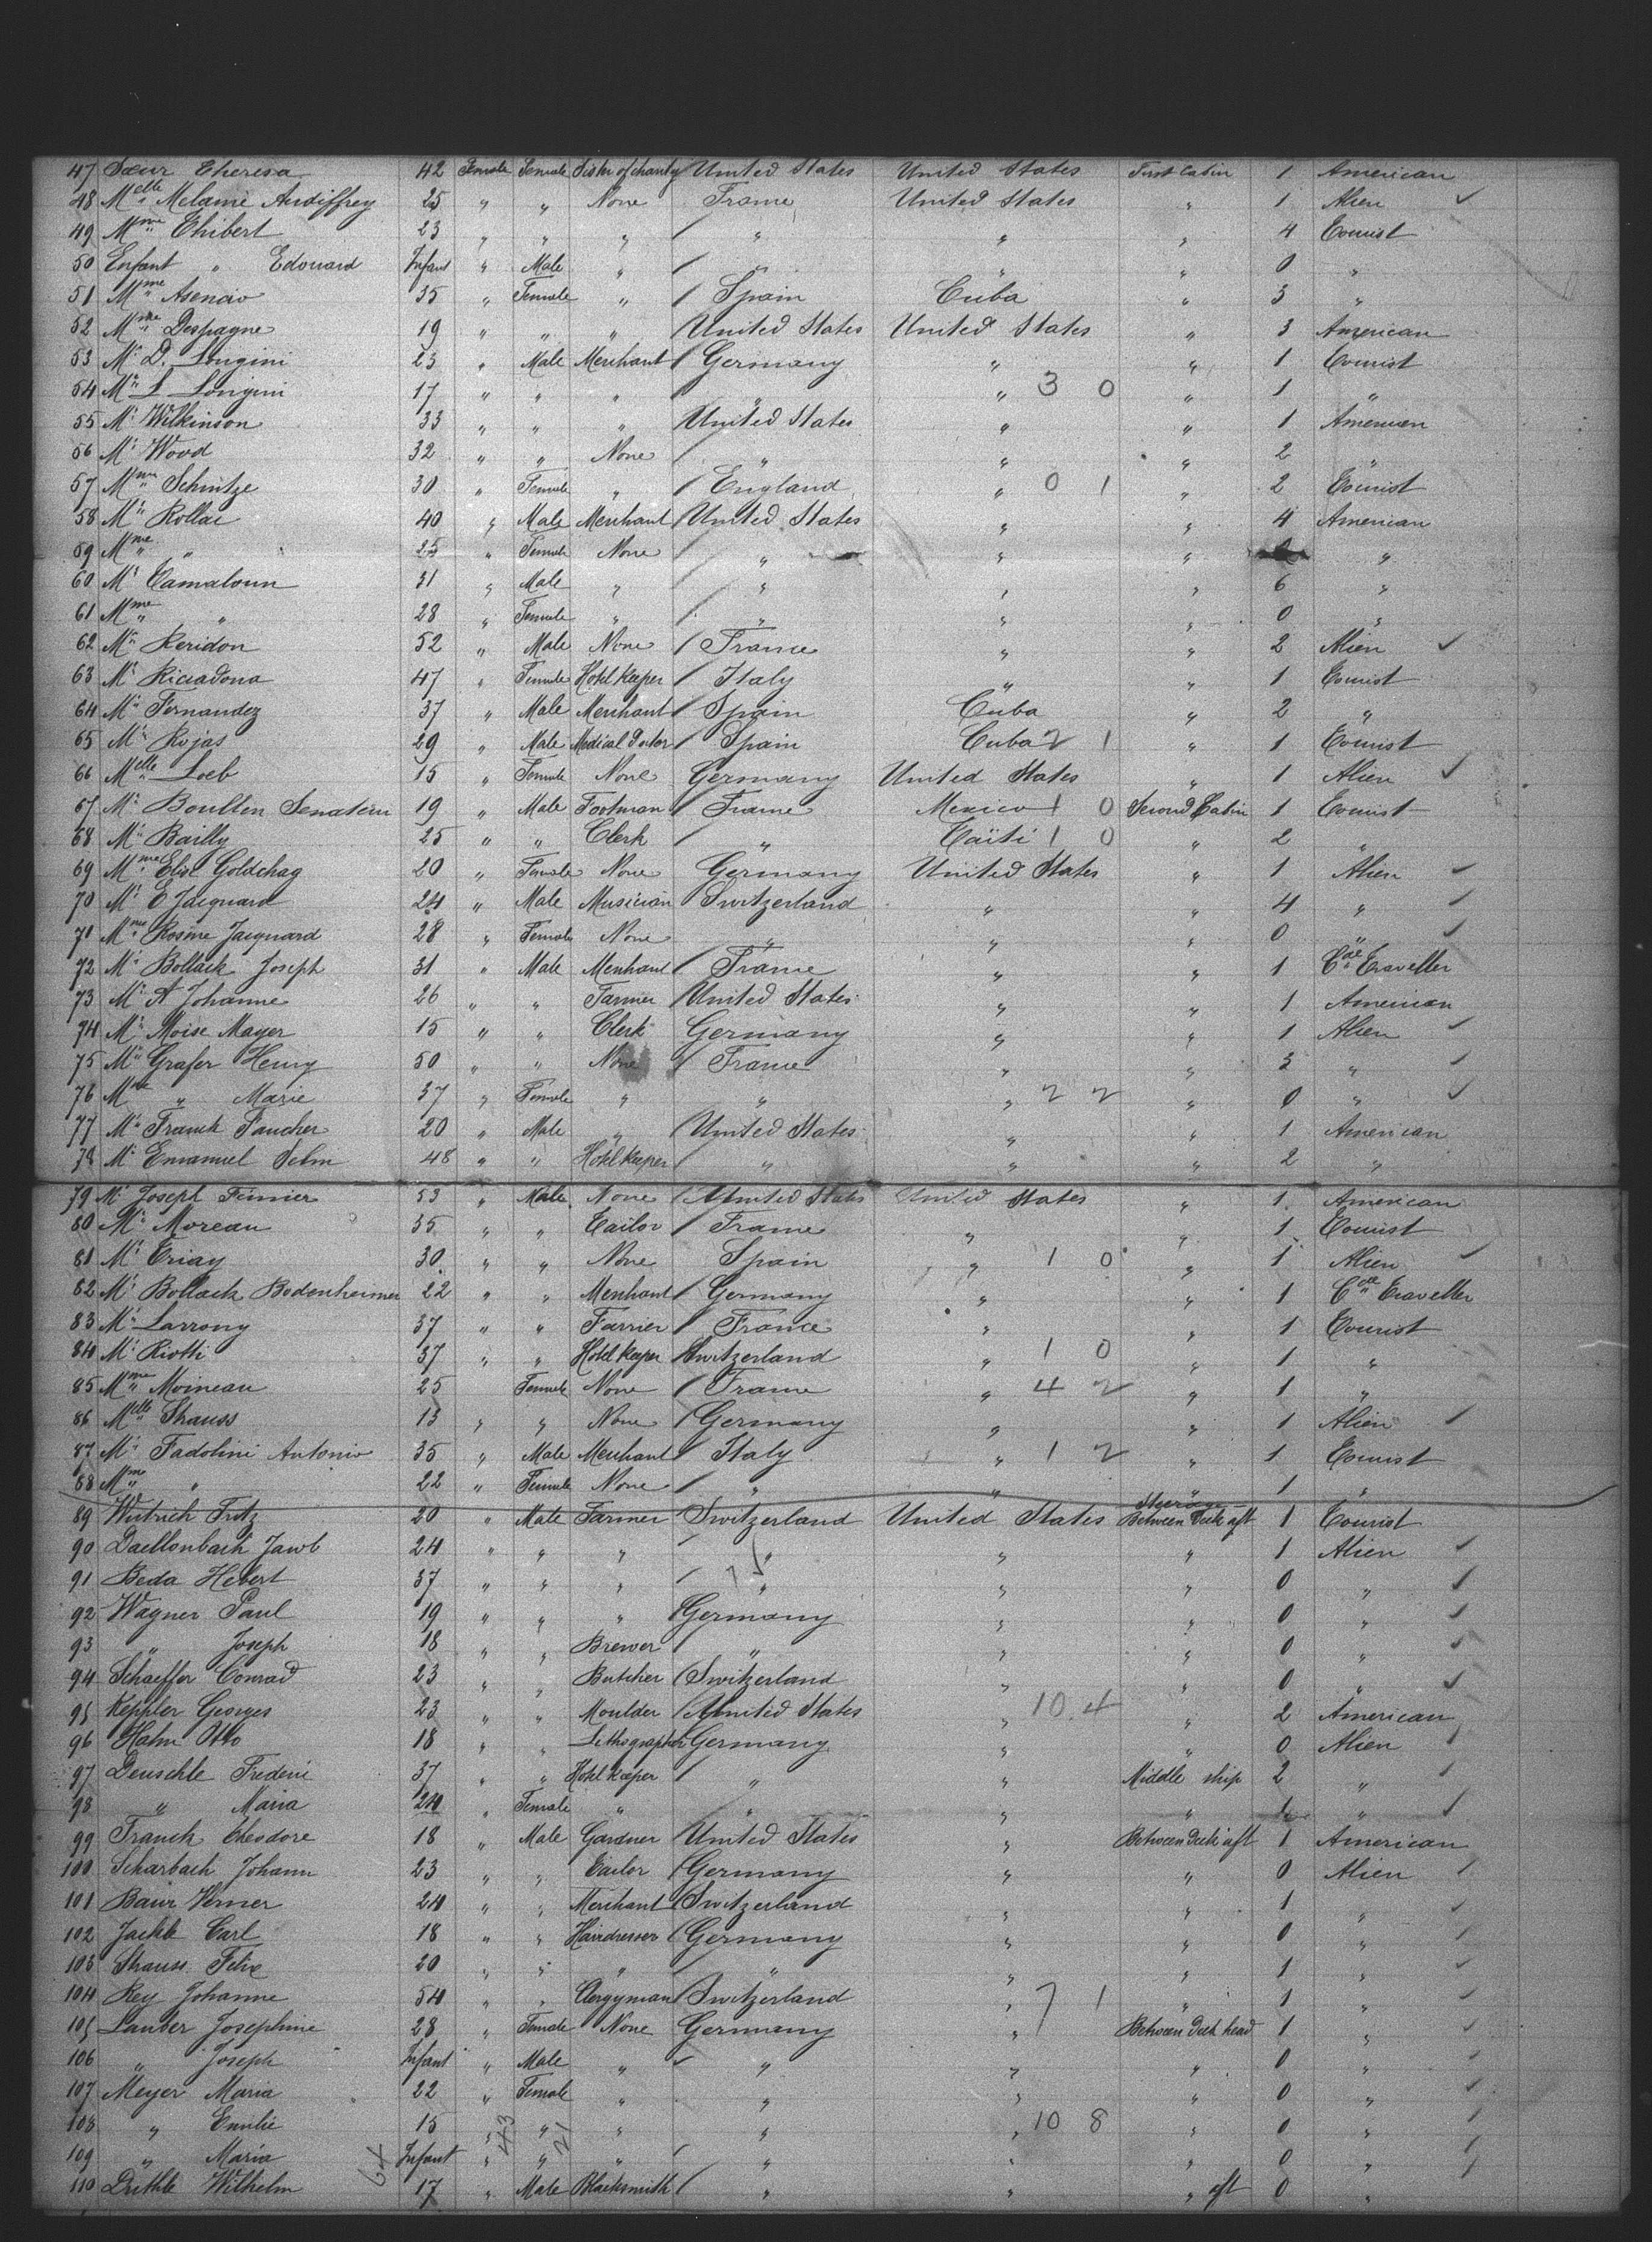 47 Sœur Theresa 42 Female Female Sister of charity United States United States First Cabin 1 American
48 Melle Melanie Audiffrey 25 " " None France United States " 1 Alien ✓
49 Mme Thibert 23 " " " / " " " 4 Tourist
50 Enfant " Edouard Infant " Male " / " " " 0 "
51 Mme Asencio 35 " Female " / Spain Cuba " 3 "
52 Mme Despagne 19 " " " United States United States " 3 American
53 Mr D. Longini 23 " Male Merchant / Germany " " 1 Tourist
54 Mr L Longini 17 " " " " " 3 0 " 1 "
55 Mr Wilkinson 33 " " " United States " " 1 American
56 Mr Wood 32 " " None / " " " 2 "
57 Mme Schintze 30 " Female " / England " 0 1 " 2 Tourist
58 Mr Rollac 40 " Male Merchant / United States " " 4 American
59 Mme " 25 " Female None / " " " "
60 Mr Camaloun 31 " Male " / " " " 6 "
61 Mme " 28 " Female " / " " " 0 "
62 Mr Keridon 52 " Male None / France " " 2 Alien ✓
63 Mr Riccadona 47 " Female Hotel Keeper / Italy " " 1 Tourist
64 Mr Fernandez 37 " Male Merchant / Spain Cuba " 2 "
65 Mr Rojas 29 " Male Medical Doctor / Spain Cuba 2 1 " 1 Tourist
66 Melle Loeb 15 " Female None Germany United States " 1 Alien ✓
67 Mr Boullen Senateur 19 " Male Footman / France Mexico 1 0 Second Cabin 1 Tourist
68 Mr Bailly 25 " " Clerk / " Caïti 1 0 " 2 "
69 Mme Elise Goldchag 20 " Female None Germany United States " 1 Alien ✓
70 Mr E Jacquard 24 " Male Musician Switzerland " " 4 " ✓
71 Mme Rosine Jacquard 28 " Female None " " " 0 " ✓
72 Mr Bollack Joseph 31 " Male Merchant / France " " 1 Cal Traveller
73 Mr A Johanne 26 " " Farmer / United States " " 1 American
74 Mr Moise Mayer 15 " " Clerk Germany " " 1 Alien ✓
75 Mr Grafer Henry 50 " " None / France " " 3 " ✓
76 Mme " Marie 37 " Female " " " 2 2 " 0 " ✓
77 Mr Franck Faucher 20 " Male " United States " " 1 American
78 Mr Emanuel Selm 48 " " Hotel Keeper / " " " 2 "
79 Mr Joseph Fimier 53 " Male None / United States United States " 1 American
80 Mr Moreau 35 " " Tailor / France " " 1 Tourist
81 Mr Triay 30 " " None Spain " 1 0 " 1 Alien ✓
82 Mr Bollack Bodenheimer 22 " " Merchant / Germany " " 1 Cal Traveller
83 Mr Larrony 37 " " Farrier / France " " 1 Tourist
84 Mr Riotti 37 " " Hotel Keeper Switzerland " 1 0 " 1 "
85 Mme Moineau 25 Female None / France " 4 2 " 1 "
86 Melle Strauss 13 " " None / Germany " " 1 Alien ✓
87 Mr Fadolini Antonio 35 " Male Merchant / Italy " 1 2 " 1 Tourist
88 Mme " 22 " Female None / " " " 1 "
Steerage
89 Wutrich Fritz 20 " Male Farmer Switzerland United States Between Deck aft 1 Tourist
90 Daellonbach Jacob 24 " " " / " " " 1 Alien ✓
91 Beda Hebert 37 " " " / " " " 0 " ✓
92 Wagner Paul 19 " " " Germany " " 0 " ✓
93 " Joseph 18 " " Brewer / " " " 0 " ✓
94 Schaeffer Conrad 23 " " Butcher / Switzerland " " 0 " ✓
95 Keppler Georges 23 " " Moulder / United States " 10 4 " 2 American
96 Hahn Otto 18 " " Lithographer Germany " " 0 Alien ✓
97 Deuschle Frederic 37 " " Hotel Keeper / " " Middle ship 2 " ✓
98 " Maria 24 " Female " " " " " ✓
99 Franck Theodore 18 " Male Gardner United States " Between Deck aft 1 American
100 Scharbach Johann 23 " " Tailor / Germany " " 0 Alien ✓
101 Baur Verner 24 " " Merchant / Switzerland " " 1 " ✓
102 Jackle Carl 18 " " Hairdresser / Germany " " 0 " ✓
103 Strauss Felix 20 " " " / " " " 1 " ✓
104 Rey Johanne 54 " " Clergyman / Switzerland " 7 1 " 1 " ✓
105 Lauber Josephine 28 " Female None Germany " Between Deck head 1 " ✓
106 " Joseph Infant " Male " ✓ " " " 0 " ✓
107 Meyer Maria 22 " Female " " " " 0 " ✓
108 " Emilie 15 " " " " " 10 8 " 0 " ✓
109 " Maria Infant " " " / " " " 0 " ✓
64 43 21
110 Wilhelm 17 " Male Blacksmith / " " " aft 0 "